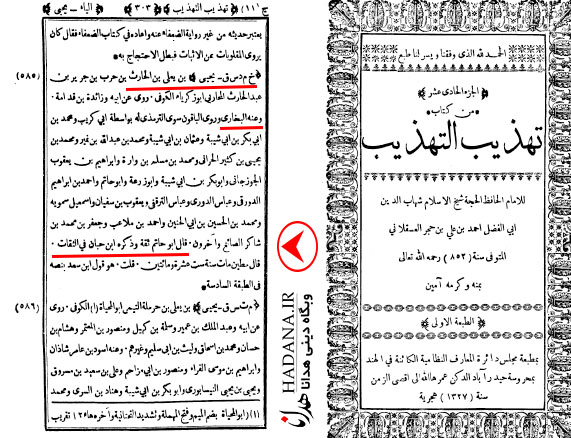 الحمد لله الذى وفقنا ويسر لنا طبع
الجزء الحادى عشر
من كتاب
تهذيب التهذيب
للامام الحافظ الحجة شيخ الاسلام شهاب الدين
ابي الفضل احمد بن علي بن حجر العسقلاني
المتوفى سنة (٨٥٢) رحمه الله تعالى
بمنه وكرمه آمين
الطبعة الاولى
بمطبعة مجلس دائرة المعارف النظامية الكائنة في الهند
بمحروسة حيدرآباد الدكن عمرها الله الى اقصى الزمن
سنة (١٣٢٧) هجرية
HADANA.IR
وبگاه دینی هدانا
ج (١١) تهذيب التهذيب ٣٠٣ الياء - يحيى
يعتبر حديثه من غير رواية الضعفاء عنه واعاده في كتاب الضعفاء فقال كان
يروى المقلوبات عن الاثبات فبطل الاحتجاج به
(٥٨٥) خ م د س ق - يحيى بن يعلى بن الحارث بن حرب بن جرير بن
عبد الحارث المحاربي ابو زكرياء الكوفى. روى عن ابيه وزائدة بن قدامة.
وعنه البخارى وروى الباقون سوى الترمذى له بواسطة ابي كريب ومحمد بن
ابي بكر بن ابي شيبة وعثمان بن ابي شيبة ومحمد بن عبد الله بن نمير ومحمد بن
يحيى بن كثير الحرانى ومحمد بن مسلم بن وارة وابراهيم بن يعقوب
الجوزجانى وابو بكر بن ابي شيبة وابو زرعة وابو حاتم واحمد بن ابراهيم
الدورقى وعباس الدورى وعباس الترقفى ويعقوب بن سفيان واسمعيل سمويه
ومحمد بن الحسين بن ابي الحنين واحمد بن ملاعب وجعفر بن محمد بن
شاكر الصائغ وآخرون. قال ابو حاتم ثقة وذكره ابن حبان في الثقات.
قال مطين مات سنة ست عشرة ومائتين. قلت. هو قول ابن سعد بنصه
في الطبقة السادسة
(٥٨٦) م ت س ق - يحيى بن يعلى بن حرملة التيمى ابو المحياة (١) الكوفى. روى
عن ابيه وعبد الملك بن عمير وسلمة بن كهيل ومنصور بن المعتمر وهشام بن
حسان ومحمد بن اسحاق وليث بن ابي سليم وغيرهم. وعنه اسود بن عامر شاذان
وابراهيم بن موسى الفراء ومنصور بن ابي مزاحم وسعيد بن منصور
ويحيى بن يحيى النيسابورى وابو بكر بن ابي شيبة وهناد بن السرى ومحمد
(١) ابو المحياة بضم الميم وفتح المهملة وتشديد التحتانية وآخره هاء ١٢ تقريب